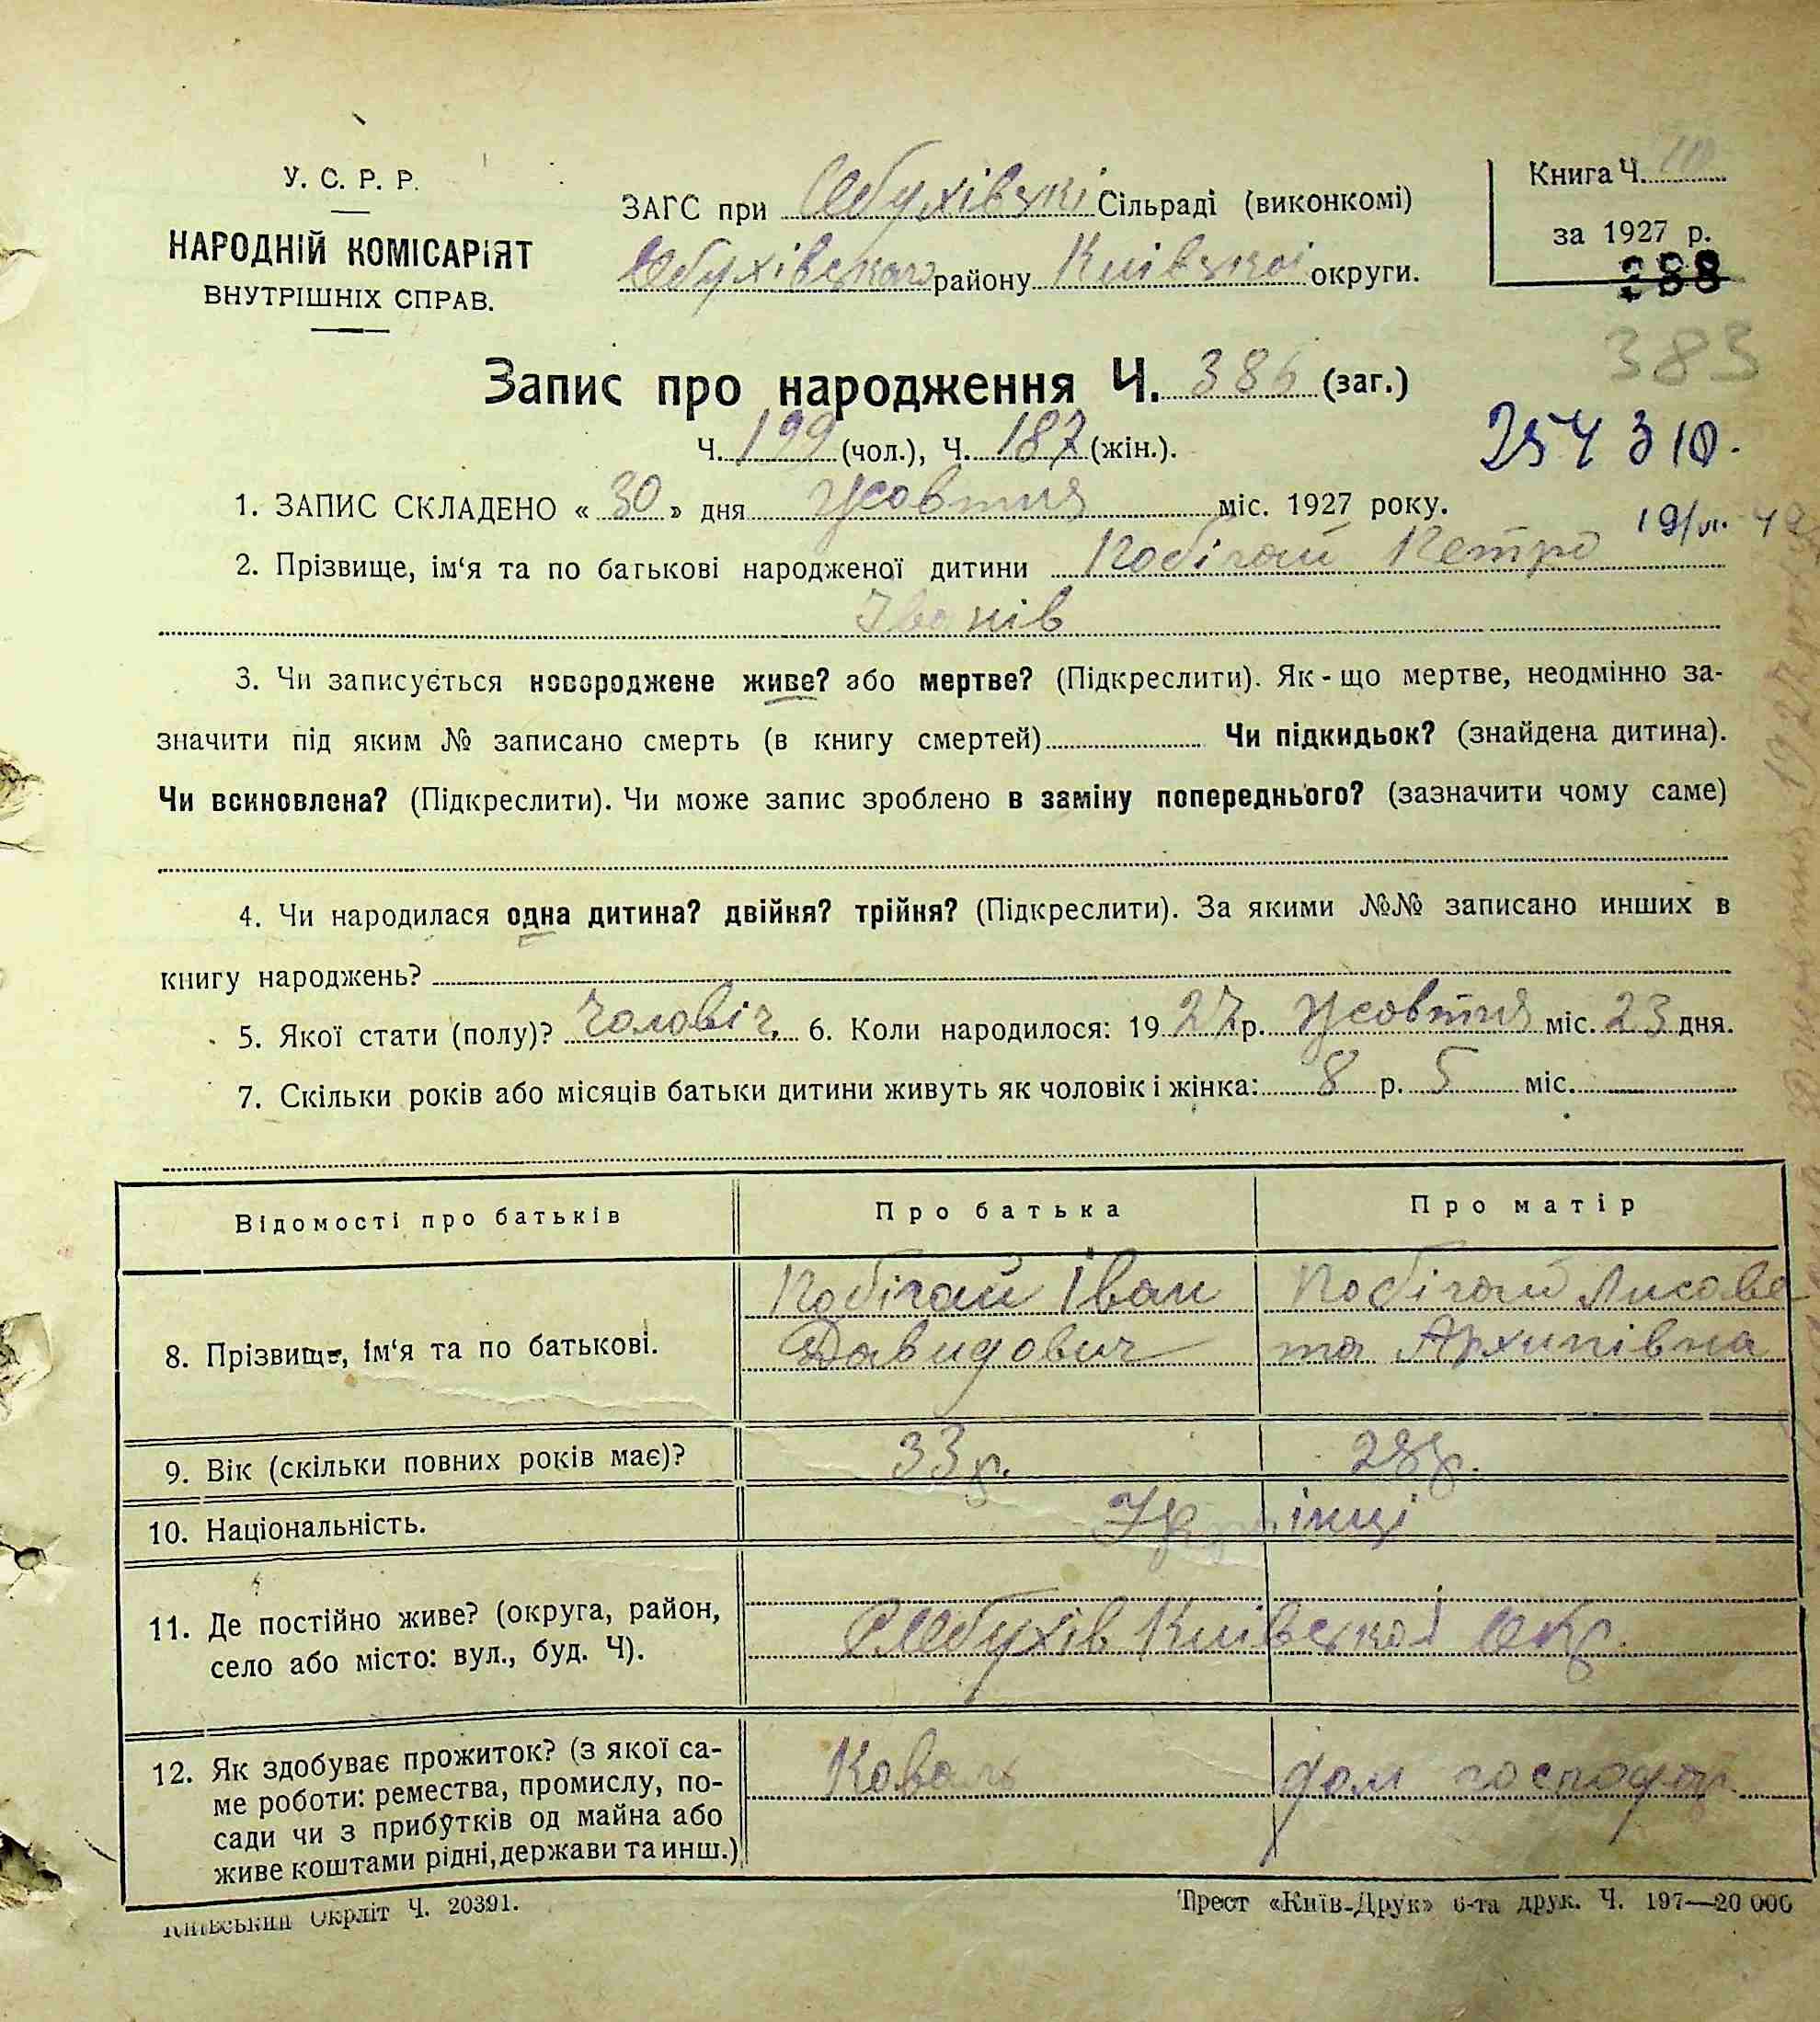 У. С. Р. Р.
НАРОДНІЙ КОМІСАРІЯТ
ВНУТРІШНІХ СПРАВ.
ЗАГС при Обухівські Сільраді (виконкомі)
Обухівського району Київської округи.
Книга Ч.
за 1927 р.
388
383
Запис про народження Ч. 386 (заг.)
Ч. 199 (чол.), Ч. 187 (жін.).
254 310.
1. ЗАПИС СКЛАДЕНО « 30 » дня Жовтня міс. 1927 року.
2. Прізвище, ім‘я та по батькові народженої дитини Побігай Петро
Іванів
3. Чи записується новороджене живе? або мертве? (Підкреслити). Як-що мертве, неодмінно за-
значити під яким № записано смерть (в книгу смертей) Чи підкидьок? (знайдена дитина).
Чи всиновлена? (Підкреслити). Чи може запис зроблено в заміну попереднього? (зазначити чому саме)
4. Чи народилася одна дитина? двійня? трійня? (Підкреслити). За якими №№ записано инших в
книгу народжень?
5. Якої стати (полу)? Чоловіч. 6. Коли народилося: 1927 р. Жовтня міс. 23 дня.
7. Скільки років або місяців батьки дитини живуть як чоловік і жінка: 8 р. 5 міс.
Відомості про батьків Про батька Про матір
8. Прізвище, ім‘я та по батькові. Побігай Іван Побігай Лисаве
Давидович та Архипівна
9. Вік (скільки повних років має)? 33 р. 28 р.
10. Національність. Українці
11. Де постійно живе? (округа, район,
село або місто: вул., буд. Ч). Обухів Київської Окр.
12. Як здобуває прожиток? (з якої са-
ме роботи: ремества, промислу, по-
сади чи з прибутків од майна або
живе коштами рідні, держави та инш.)
Коваль дом господар.
Київський Окрліт Ч. 20391.
Трест «Київ-Друк» 6-та друк. Ч. 197—20 000